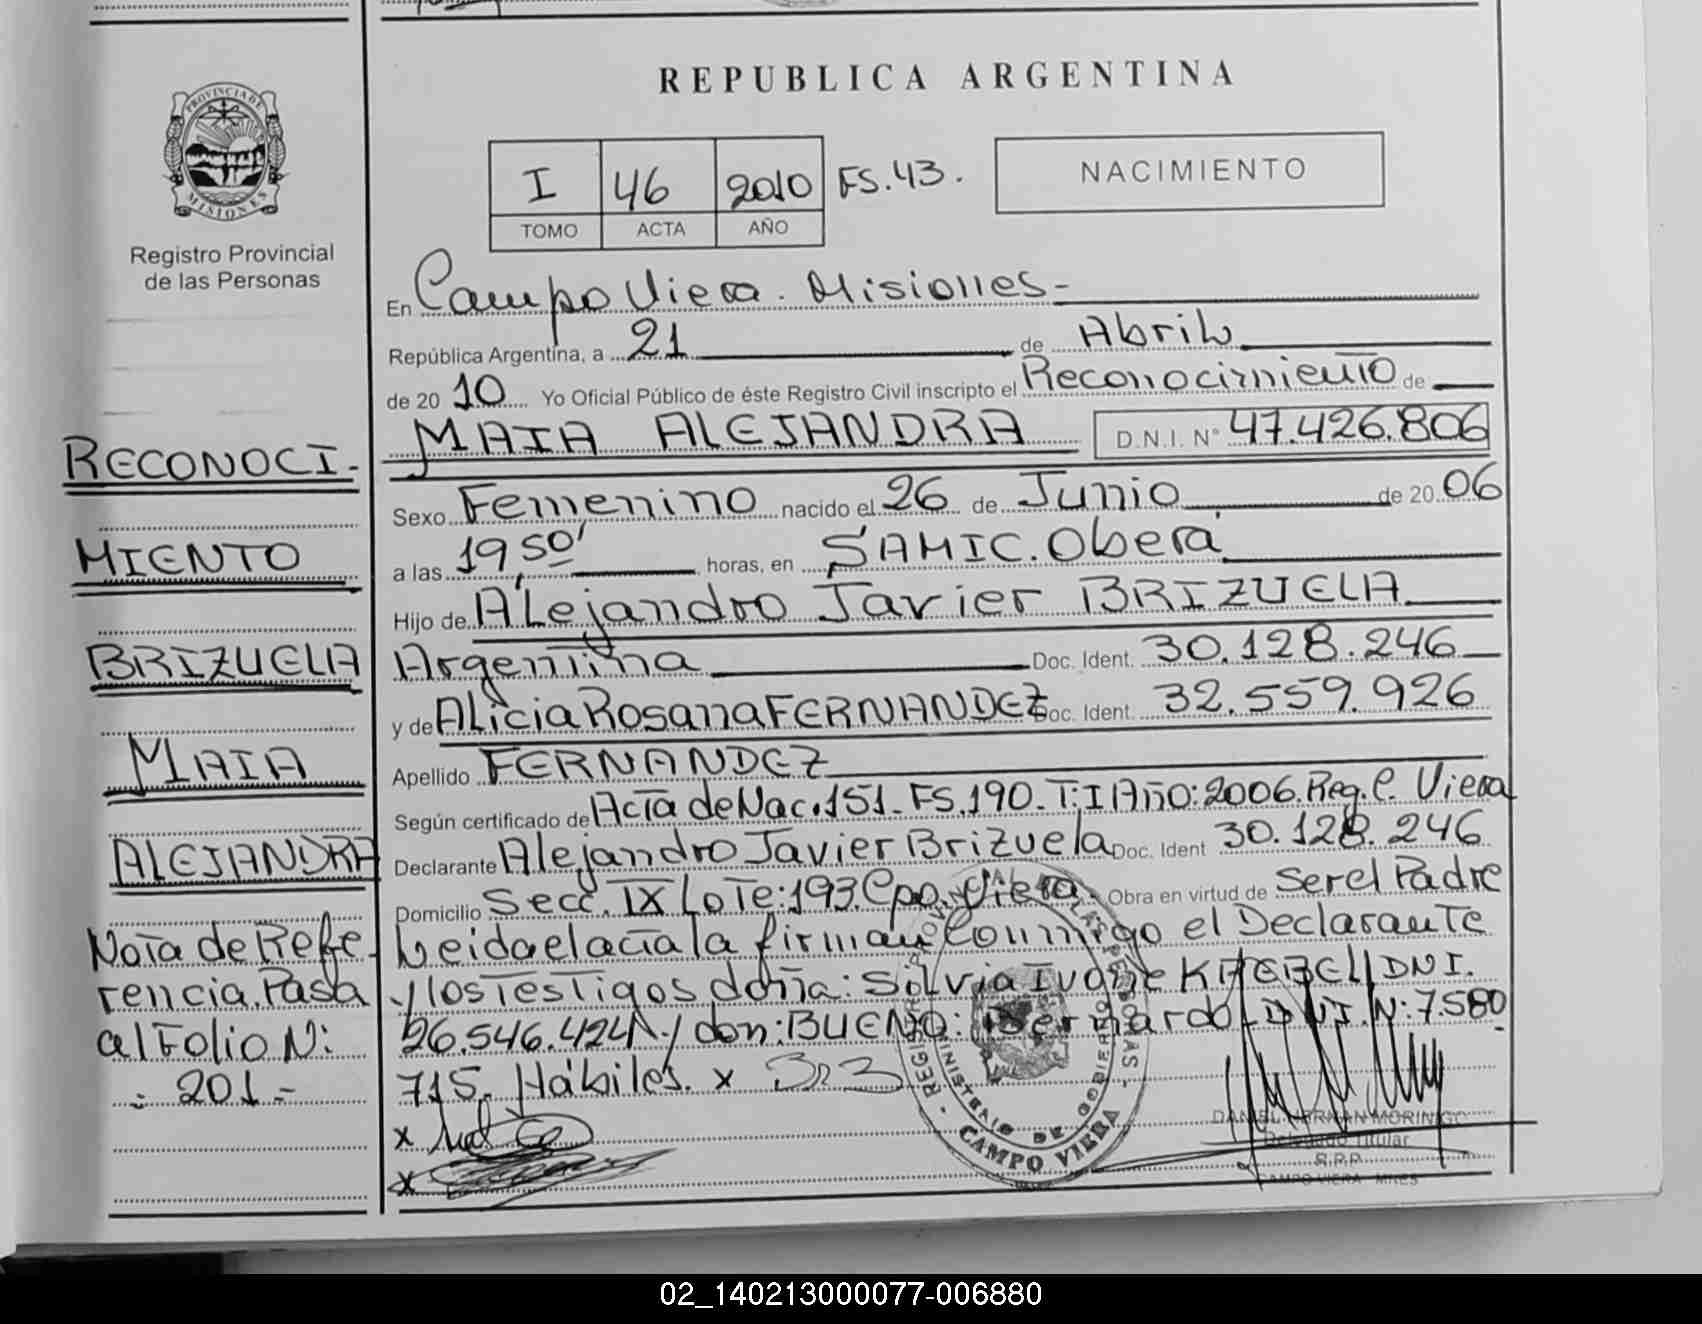 REPUBLICA ARGENTINA
PROVINCIA DE
MISIONES
Registro Provincial
de las Personas
I 46 2010 FS.43.
TOMO ACTA AÑO
NACIMIENTO
En Campo Viera. Misiones-
República Argentina, a 21 de Abril
de 20 10 Yo Oficial Público de éste Registro Civil inscripto el Reconocimiento de
MAIA ALEJANDRA D.N.I. N° 47.426.806
Sexo Femenino nacido el 26 de Junio de 20 06
a las 19 50' horas, en SAMIC. Oberá
Hijo de Alejandro Javier BRIZUELA
Argentina Doc. Ident. 30.128.246
y de Alicia Rosana FERNANDEZ Doc. Ident. 32.559.926
Apellido FERNANDEZ
Según certificado de Acta de Nac. 151- FS.190-T:I Año:2006. Reg. C. Viera
Declarante Alejandro Javier Brizuela Doc. Ident 30.128.246
Domicilio Secc. IX Lote:193. Cpo. Viera. Obra en virtud de ser el Padre
Leida el acta la firman conmigo el Declarante
y los Testigos doña: Silvia Ivone DNI.
26.546.424 y don: BUENO: Bernardo- DNI.N:7.580
715. Hábiles. x
x
x
RECONOCI-
MIENTO
BRIZUELA
MAIA
ALEJANDRA
Nota de Refe-
rencia. Pasa
al Folio N:
- 201 -
REGISTRO PROVINCIAL DE LAS PERSONAS
MINISTERIO DE GOBIERNO
CAMPO VIERA
DANIEL HERNAN MORINIGO
Delegado Titular
R.P.P.
CAMPO VIERA - MNES
02_140213000077-006880